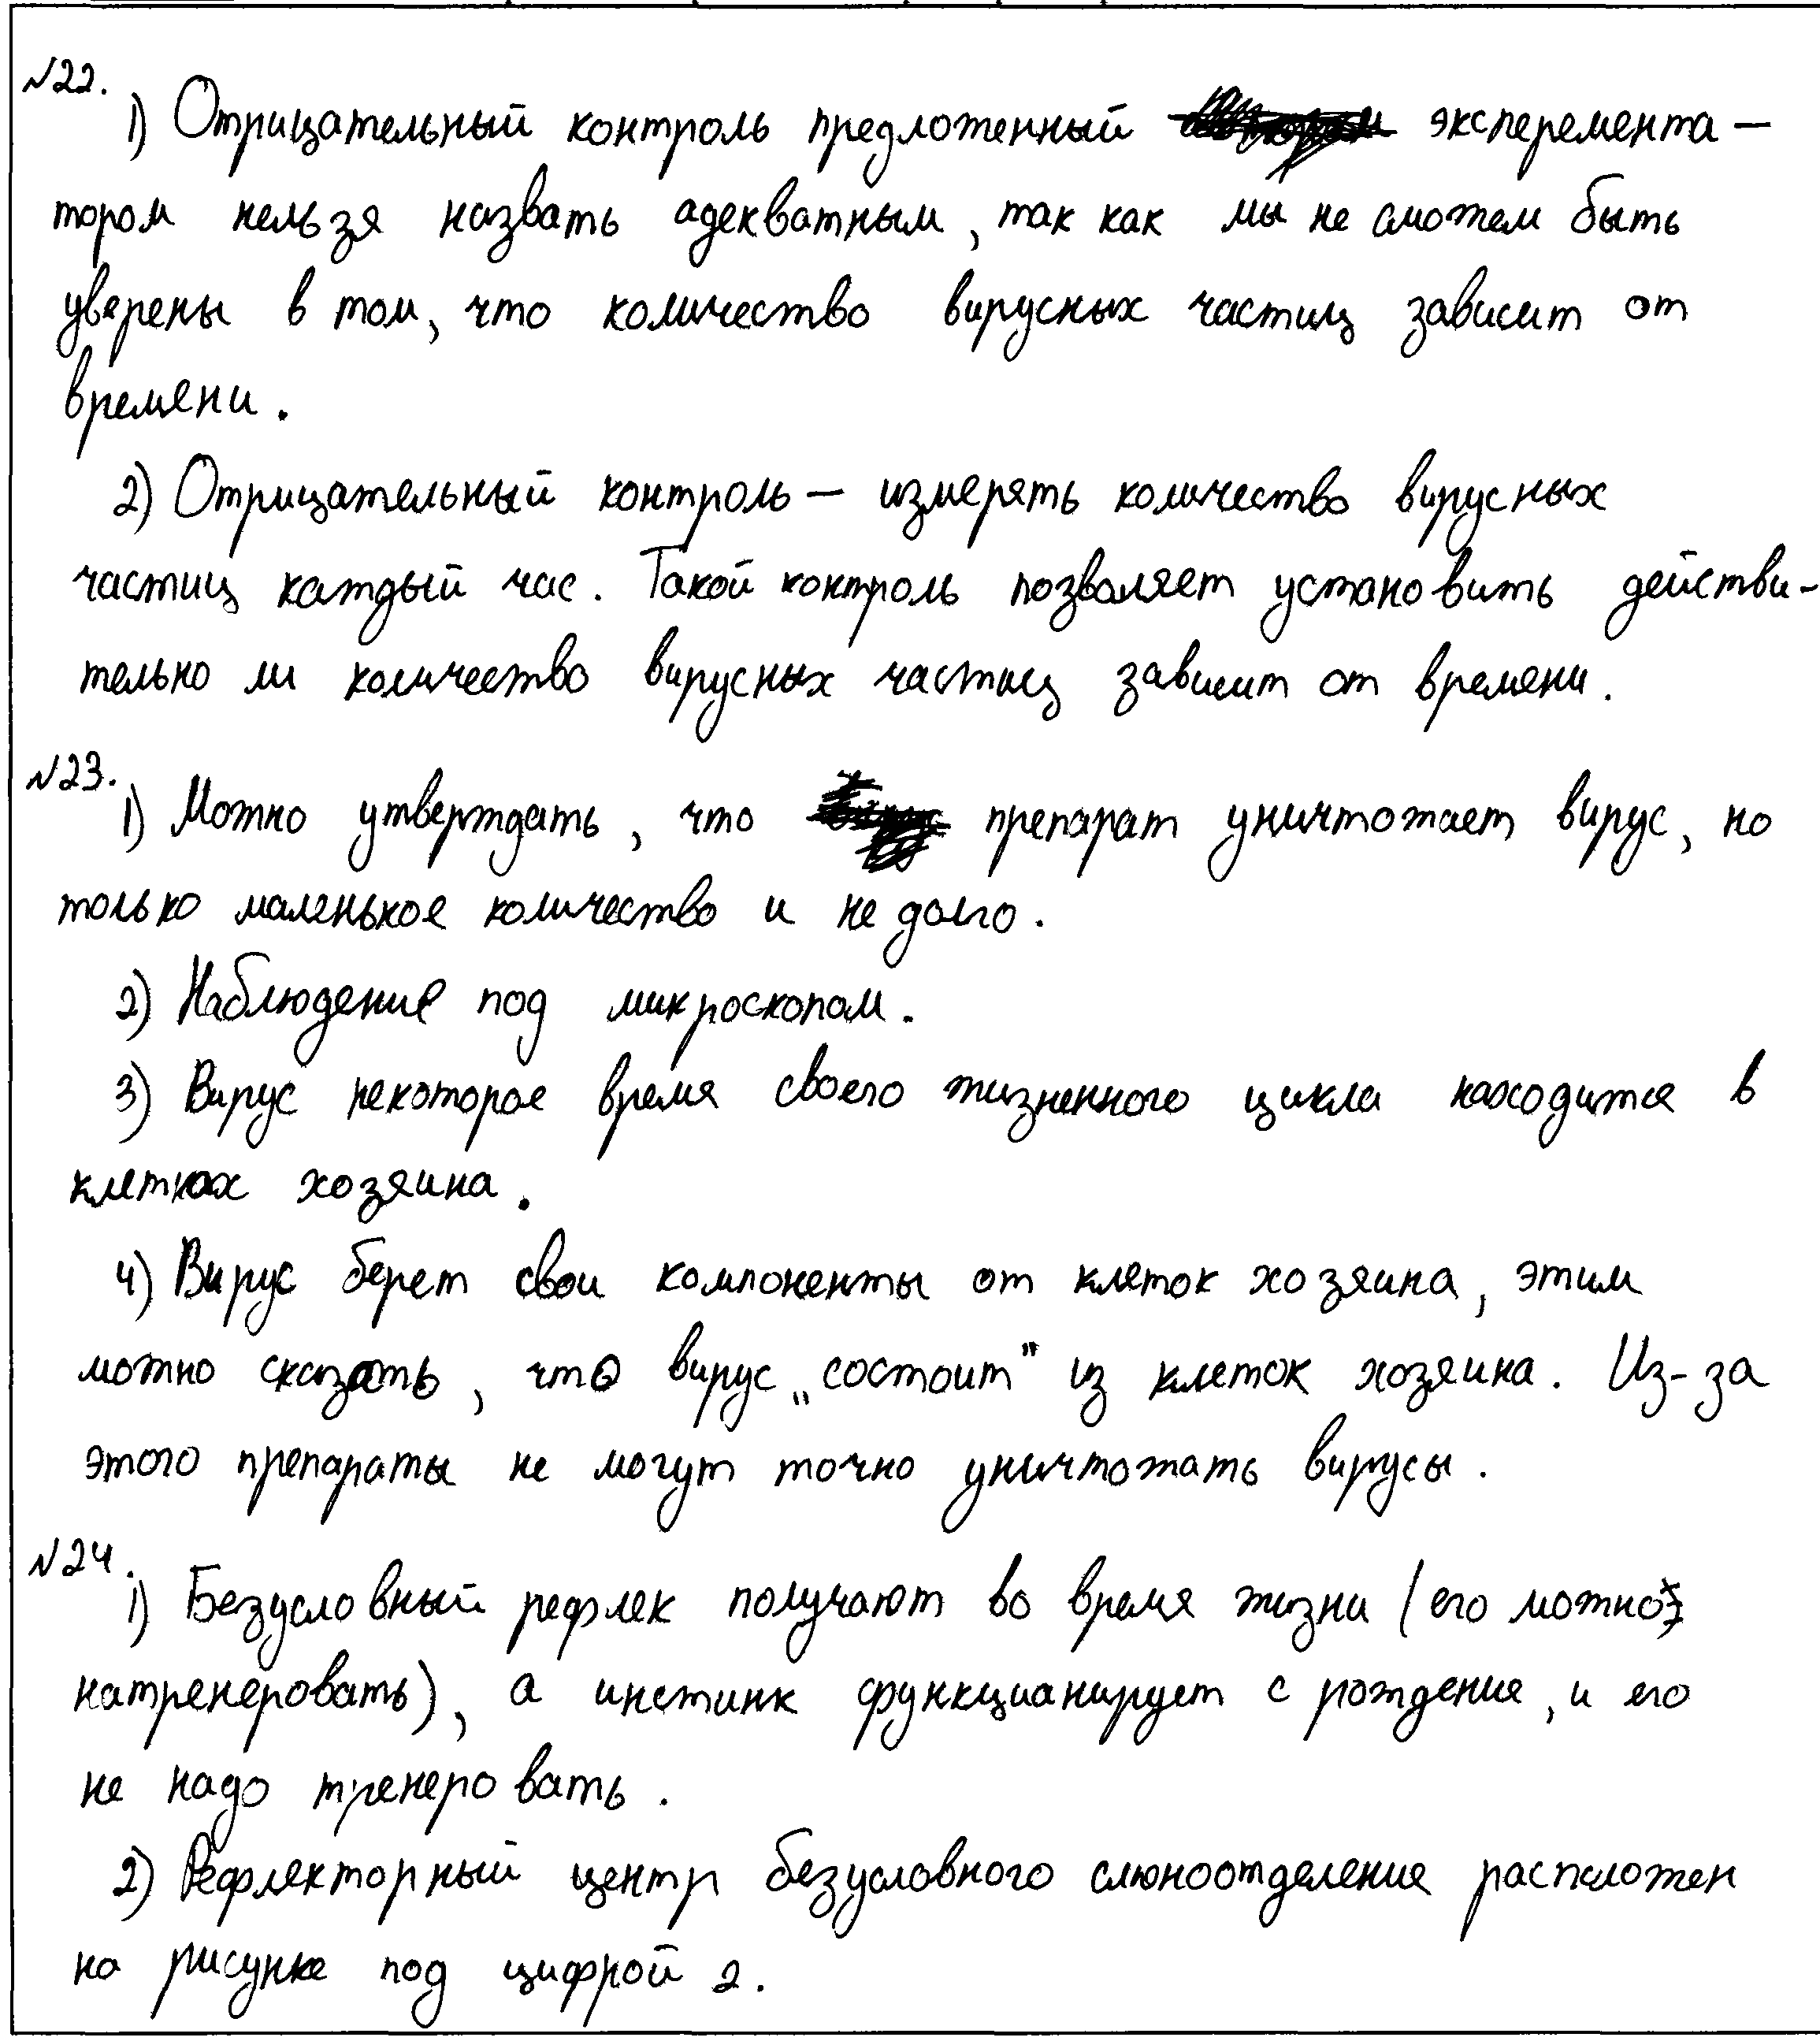 №22.
1) Отрицательный контроль предложенный эксперемента-
тором нельзя назвать адекватным, так как мы не сможем быть
уверены в том, что количество вирусных частиц зависит от
времени.
2) Отрицательный контроль – измерять количество вирусных
частиц каждый час. Такой контроль позволяет установить действи-
тельно ли количество вирусных частиц зависит от времени.
№23.
1) Можно утверждать, что препарат уничтожает вирус, но
только маленькое количество и не долго.
2) Наблюдение под микроскопом.
3) Вирус некоторое время своего жизненного цикла находится в
клетках хозяина.
4) Вирус берет свои компоненты от клеток хозяина, этим
можно сказать, что вирус „состоит" из клеток хозяина. Из-за
этого препараты не могут точно уничтожать вирусы.
№24.
1) Безусловный рефлек получают во время жизни (его можно
натренеровать), а инстинк функцианирует с рождения, и его
не надо тренеровать.
2) Рефлекторный центр безусловного слюноотделения расположен
на рисунке под цифрой 2.